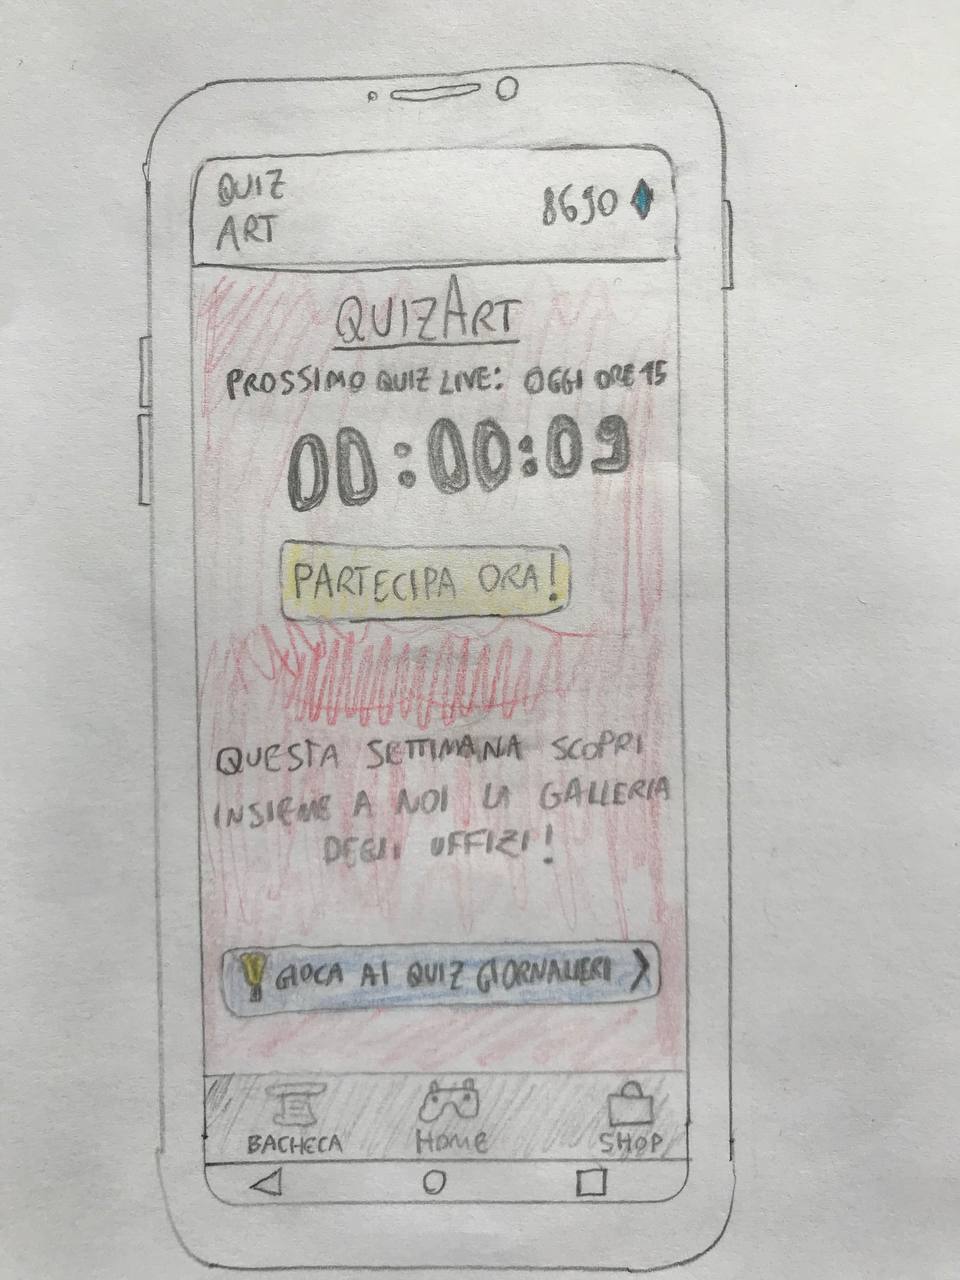 QUIZ
ART
8690
QUIZART
PROSSIMO QUIZ LIVE: OGGI ORE 15
00:00:09
PARTECIPA ORA!
QUESTA SETTIMANA SCOPRI
INSIEME A NOI LA GALLERIA
DEGLI UFFIZI!
GIOCA AI QUIZ GIORNALIERI >
BACHECA
HOME
SHOP